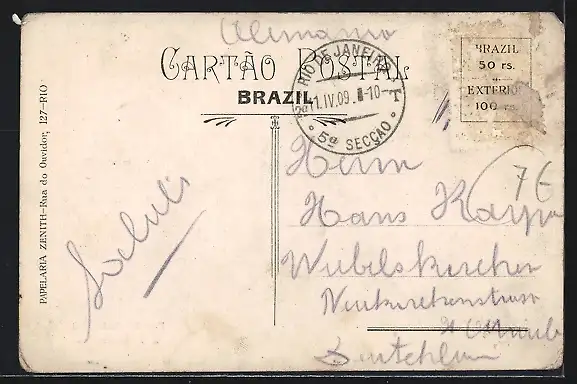 Alemania
CARTÃO POSTAL
BRAZIL
RIO DE JANEIRO
11.IV.09
5ª SECÇÃO
BRAZIL
50 rs.
EXTERIOR
100 rs.
PAPELARIA ZENITH—Rua do Ouvidor, 127—RIO
Saluti
Herrn
76
Hans Karp
Wiebelskirchen
Neunkirchenstrasse